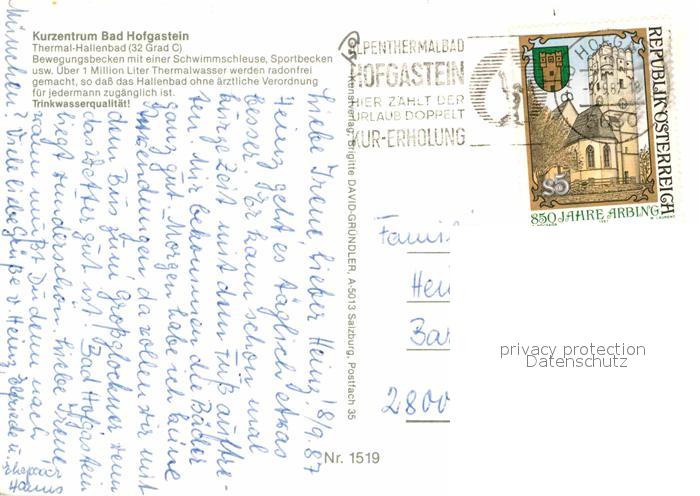 Kurzentrum Bad Hofgastein
Thermal-Hallenbad (32 Grad C)
Bewegungsbecken mit einer Schwimmschleuse, Sportbecken
usw. Über 1 Million Liter Thermalwasser werden radonfrei
gemacht, so daß das Hallenbad ohne ärztliche Verordnung
für jedermann zugänglich ist.
Trinkwasserqualität!
ALPENTHERMALBAD
HOFGASTEIN
HIER ZÄHLT DER
URLAUB DOPPELT
KUR-ERHOLUNG
REPUBLIK ÖSTERREICH
S5
850 JAHRE ARBING
Liebe Irene, lieber Heinz! 8/9.87
Heinz geht es täglich etwas
besser. Er kann schon mal
kurze Zeit mit dem Fuß auftre-
ten. Mir bekommen die Bäder
ganz gut. Morgen habe ich keine
Anwendungen, da wollen wir mit
dem Bus zum Großglockner, wenn
das Wetter gut ist. Bad Hofgastein
liegt wunderschön. Liebe Irene,
wann mußt Du denn nach
München? Viele liebe Grüße v. Heinz,
Ehepaar
Hanns
Verlag: Brigitte DAVID-GRÜNDLER, A-5013 Salzburg, Postfach 35
Nr. 1519
Famil
Hei
Bar
2800
privacy protection
Datenschutz